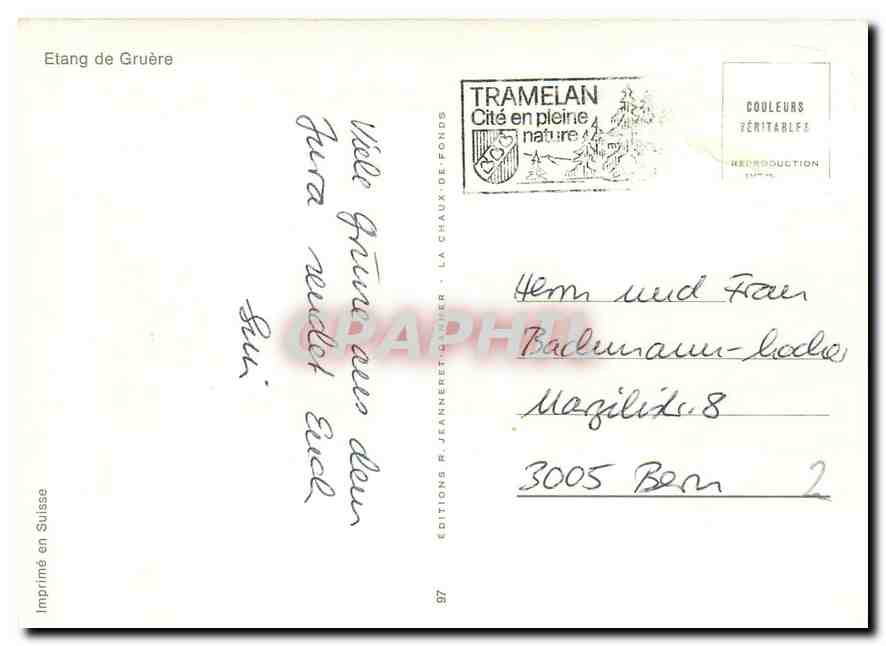 Etang de Gruère
TRAMELAN
Cité en pleine
nature
COULEURS
VÉRITABLES
REPRODUCTION
Viele Grüsse aus dem
Jura sendet Euch
Herrn und Frau
Bachmann-Locher
Marzilistr. 8
3005 Bern
2
ÉDITIONS R. JEANNERET-DANNER - LA CHAUX-DE-FONDS
97
Imprimé en Suisse